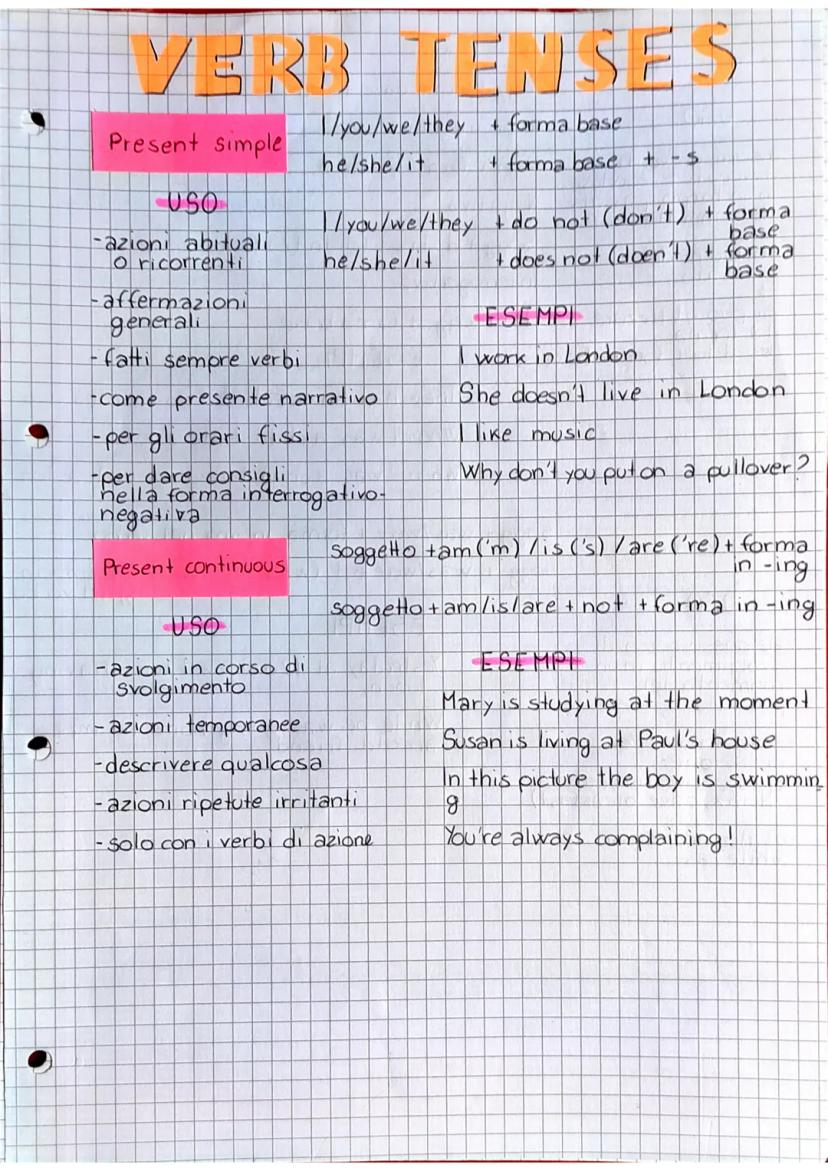 VERB TENSES
Present simple
I/you/we/they + forma base
he/she/it + forma base + -s
USO
-azioni abituali
o ricorrenti
-affermazioni
generali
-fatti sempre verbi
-come presente narrativo
-per gli orari fissi
-per dare consigli
nella forma interrogativo-
negativa
I/you/we/they + do not (don't) + forma
base
he/she/it + does not (doen't) + forma
base
ESEMPI
I work in London
She doesn't live in London
I like music
Why don't you put on a pullover?
Present continuous
soggetto +am ('m) /is ('s) /are ('re) + forma
in -ing
soggetto + am/is/are + not + forma in -ing
USO
-azioni in corso di
svolgimento
-azioni temporanee
-descrivere qualcosa
-azioni ripetute irritanti
-solo con i verbi di azione
ESEMPI
Mary is studying at the moment
Susan is living at Paul's house
In this picture the boy is swimmin_
g
You're always complaining!